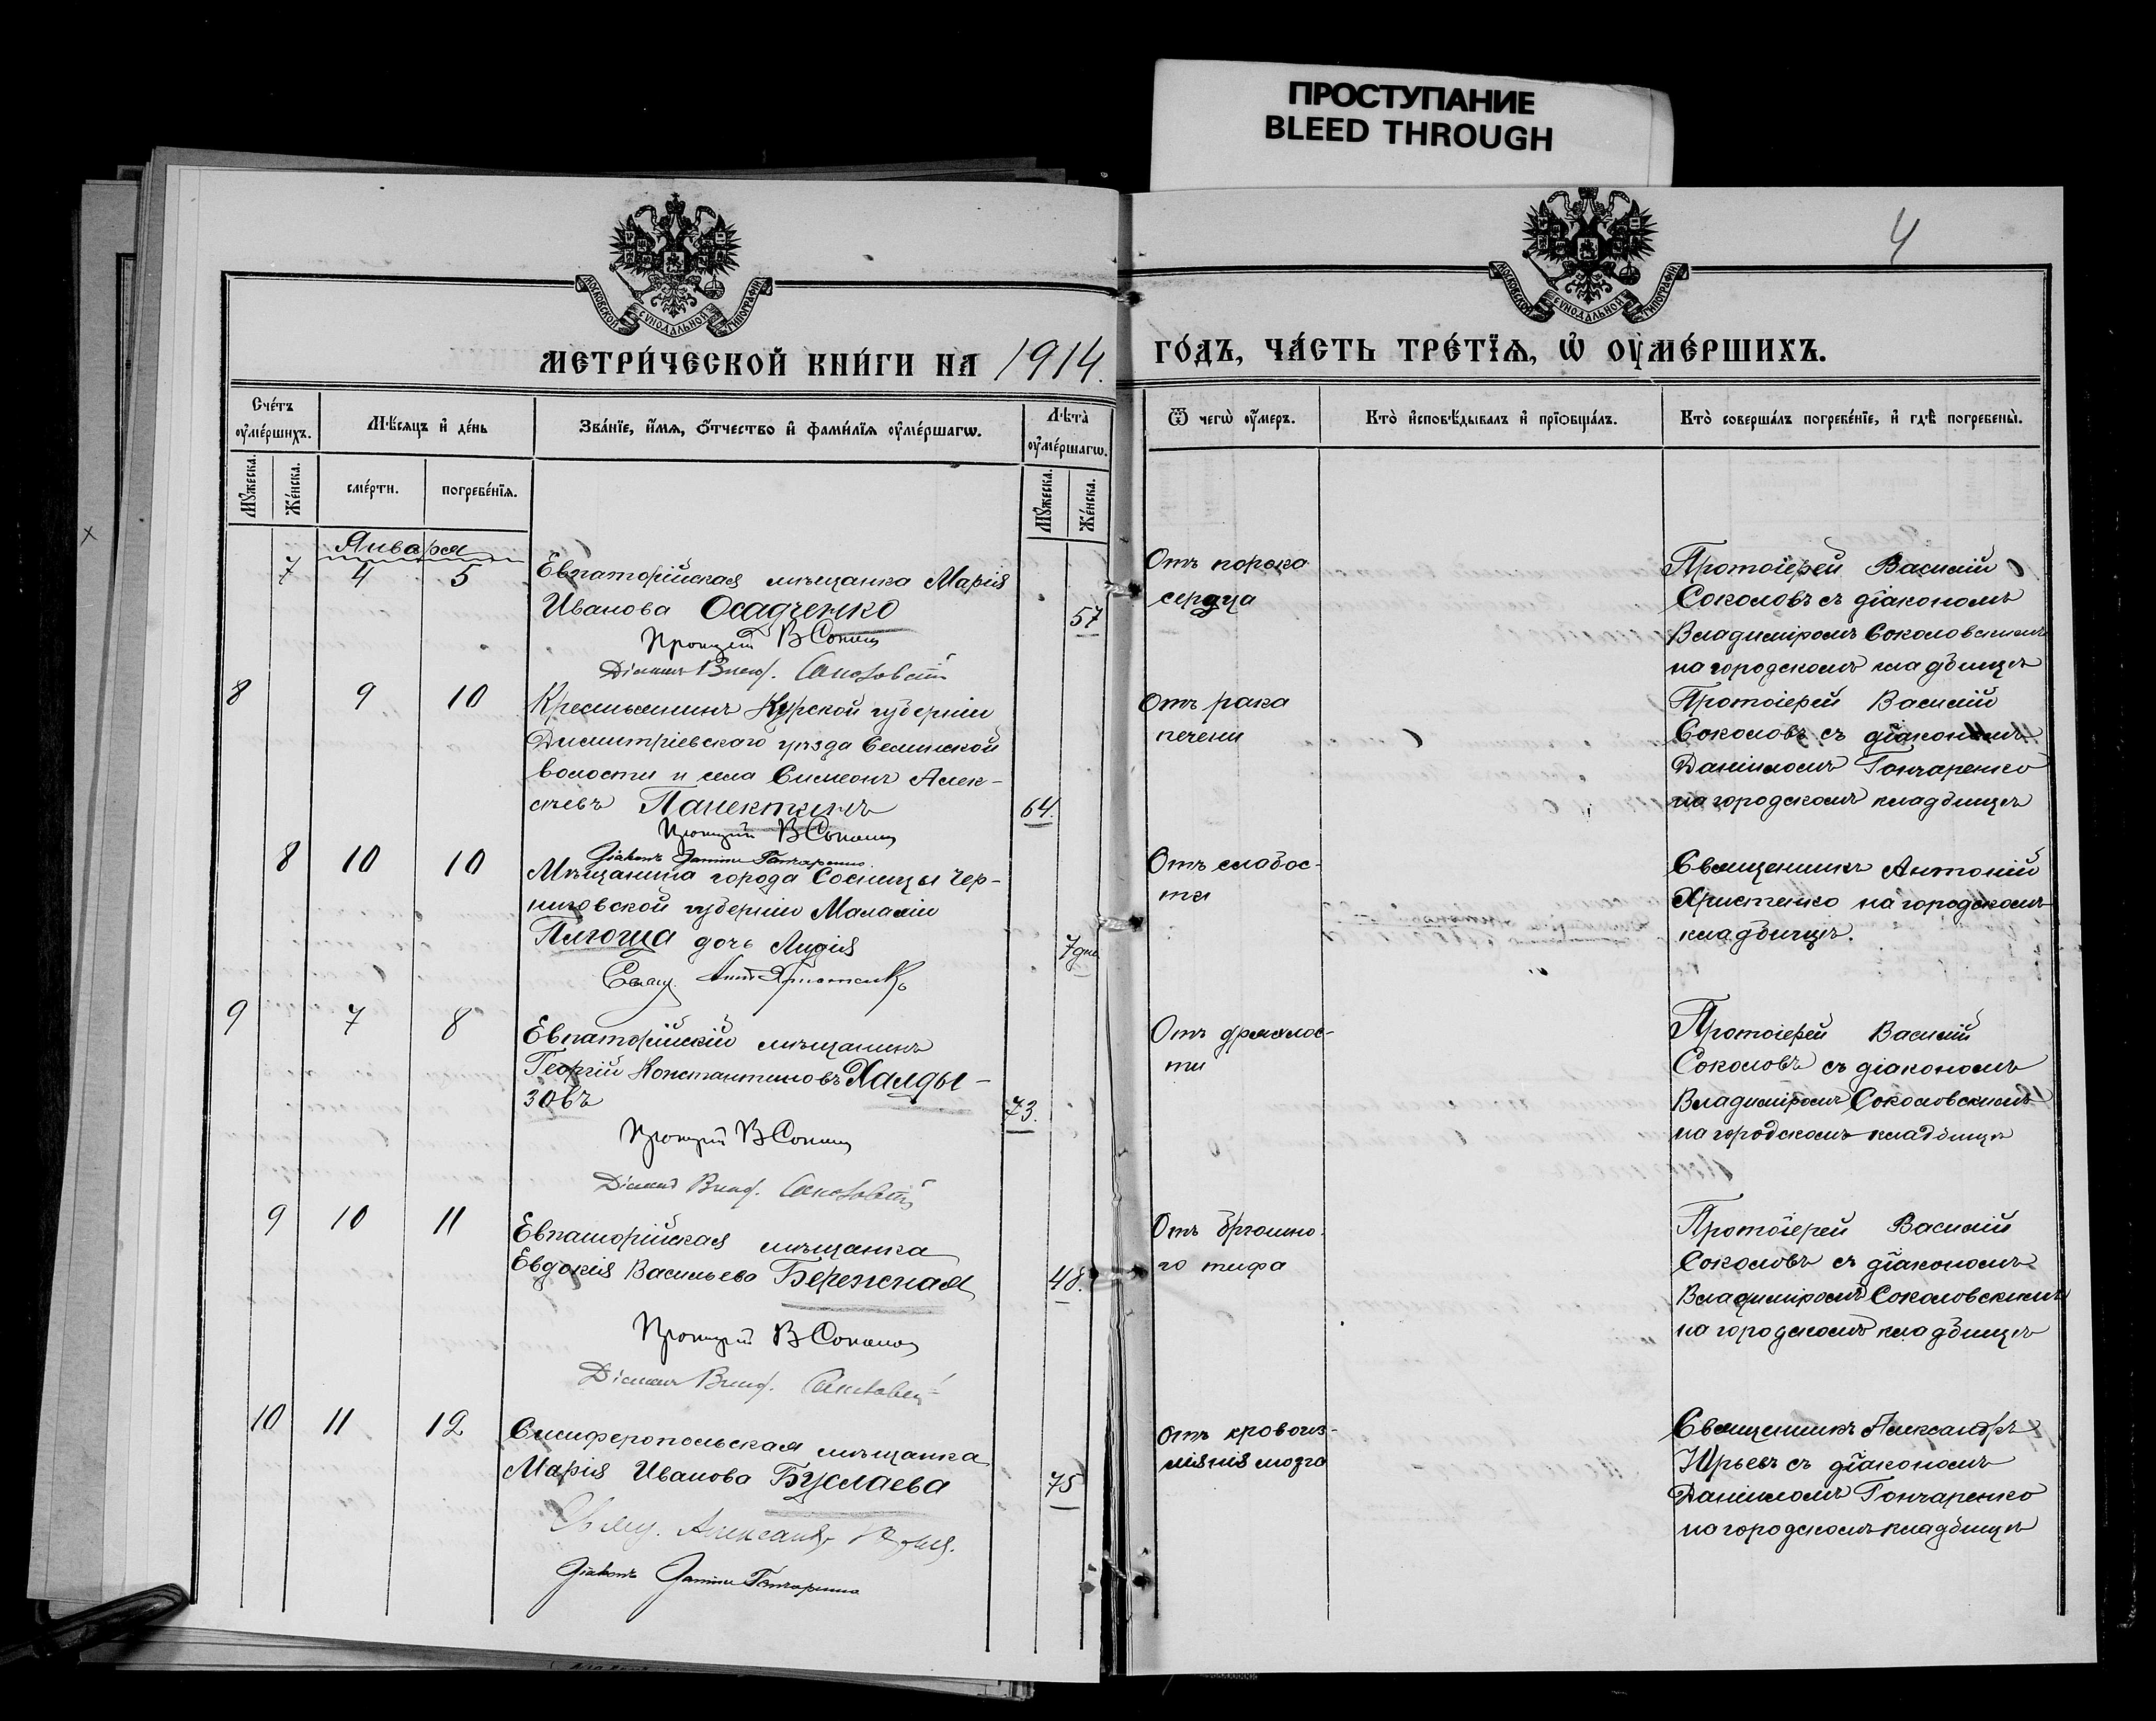 ПРОСТУПАНИЕ
BLEED THROUGH
МОСКОВСКОЙ СѴНОДАЛЬНОЙ ТИПОГРАФІИ
МОСКОВСКОЙ СѴНОДАЛЬНОЙ ТИПОГРАФІИ
4
МЕТРИ́ЧЕСКОЙ КНИ́ГИ НА 1914.
ГО́ДЪ, ЧА́СТЬ ТРЕ́ТЇѦ, Ѡ҆ ОУ҆МЕ́РШИХЪ.
Сче́тъ оу҆ме́ршихъ.
Мѣ́сяцъ и҆ де́нь
Зва́нїе, и҆́мѧ, ѻ҆́тчество и҆ фами́лїѧ оу҆ме́ршагѡ.
Лѣ́та оу҆ме́ршагѡ.
Ѿ чегѡ̀ оу҆́меръ.
Кто̀ и҆сповѣ́дывалъ и҆ прїѻбща́лъ.
Кто̀ соверша́лъ погребе́нїе, и҆ гдѣ̀ погребены̀.
Мꙋ́жеска.
Же́нска.
сме́рти.
погребе́нїѧ.
Мꙋ́жеска.
Же́нска.
Января
7 4 5
Евпаторійская мѣщанка Марія
Иванова Осадченко
57
Протоіерей В Соколовъ
Діаконъ Влад. Соколовскій
Отъ порока
сердца
Протоіерей Василій
Соколовъ съ діакономъ
Владиміромъ Соколовскимъ
на городскомъ кладбищѣ
8 9 10
Крестьянинъ Курской губерніи
Димитріевскаго уѣзда
волости и села Симеонъ Алек-
сѣевъ
64.
Протоіерей В Соколовъ
Діаконъ Даніилъ Гончаренко
Отъ рака
печени
Протоіерей Василій
Соколовъ съ діакономъ
Даніиломъ Гончаренко
на городскомъ кладбищѣ
8 10 10
Мѣщанина города Сосницы Чер-
ниговской губерніи
Плюща дочь Лидія
7 дн.
Свящ. Ант. Христенко
Отъ слабос-
ти
Священникъ Антоній
Христенко на городскомъ
кладбищѣ.
9 7 8
Евпаторійскій мѣщанинъ
Георгій Константиновъ Халды-
зовъ
73.
Протоіерей В Соколовъ
Діаконъ Влад. Соколовскій
Отъ дряхлос-
ти
Протоіерей Василій
Соколовъ съ діакономъ
Владиміромъ Соколовскимъ
на городскомъ кладбищѣ
9 10 11
Евпаторійская мѣщанка
Евдокія Васильева Бережная
48.
Протоіерей В Соколовъ
Діаконъ Влад. Соколовскій
Отъ брюшно-
го тифа
Протоіерей Василій
Соколовъ съ діакономъ
Владиміромъ Соколовскимъ
на городскомъ кладбищѣ
10 11 12
Симферопольская мѣщанка
Марія Иванова Буслаева
75
Свящ. Александръ Юрьевъ
Діаконъ Даніилъ Гончаренко
Отъ кровоиз-
ліянія мозга
Священникъ Александръ
Юрьевъ съ діакономъ
Даніиломъ Гончаренко
на городскомъ кладбищѣ